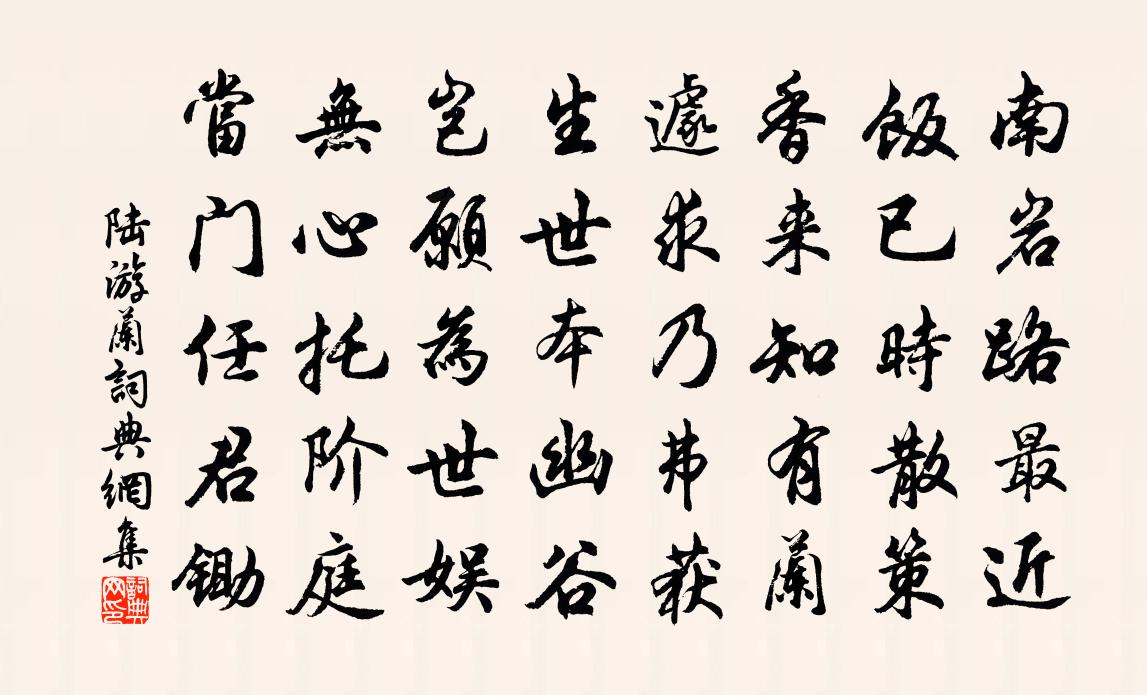 南岩路最近
飯已時散策
香来知有蘭
遽求乃弗获
生世本幽谷
岂願為世娱
無心托阶庭
當门任君鋤
陆游蘭詞典網集
詞典网印